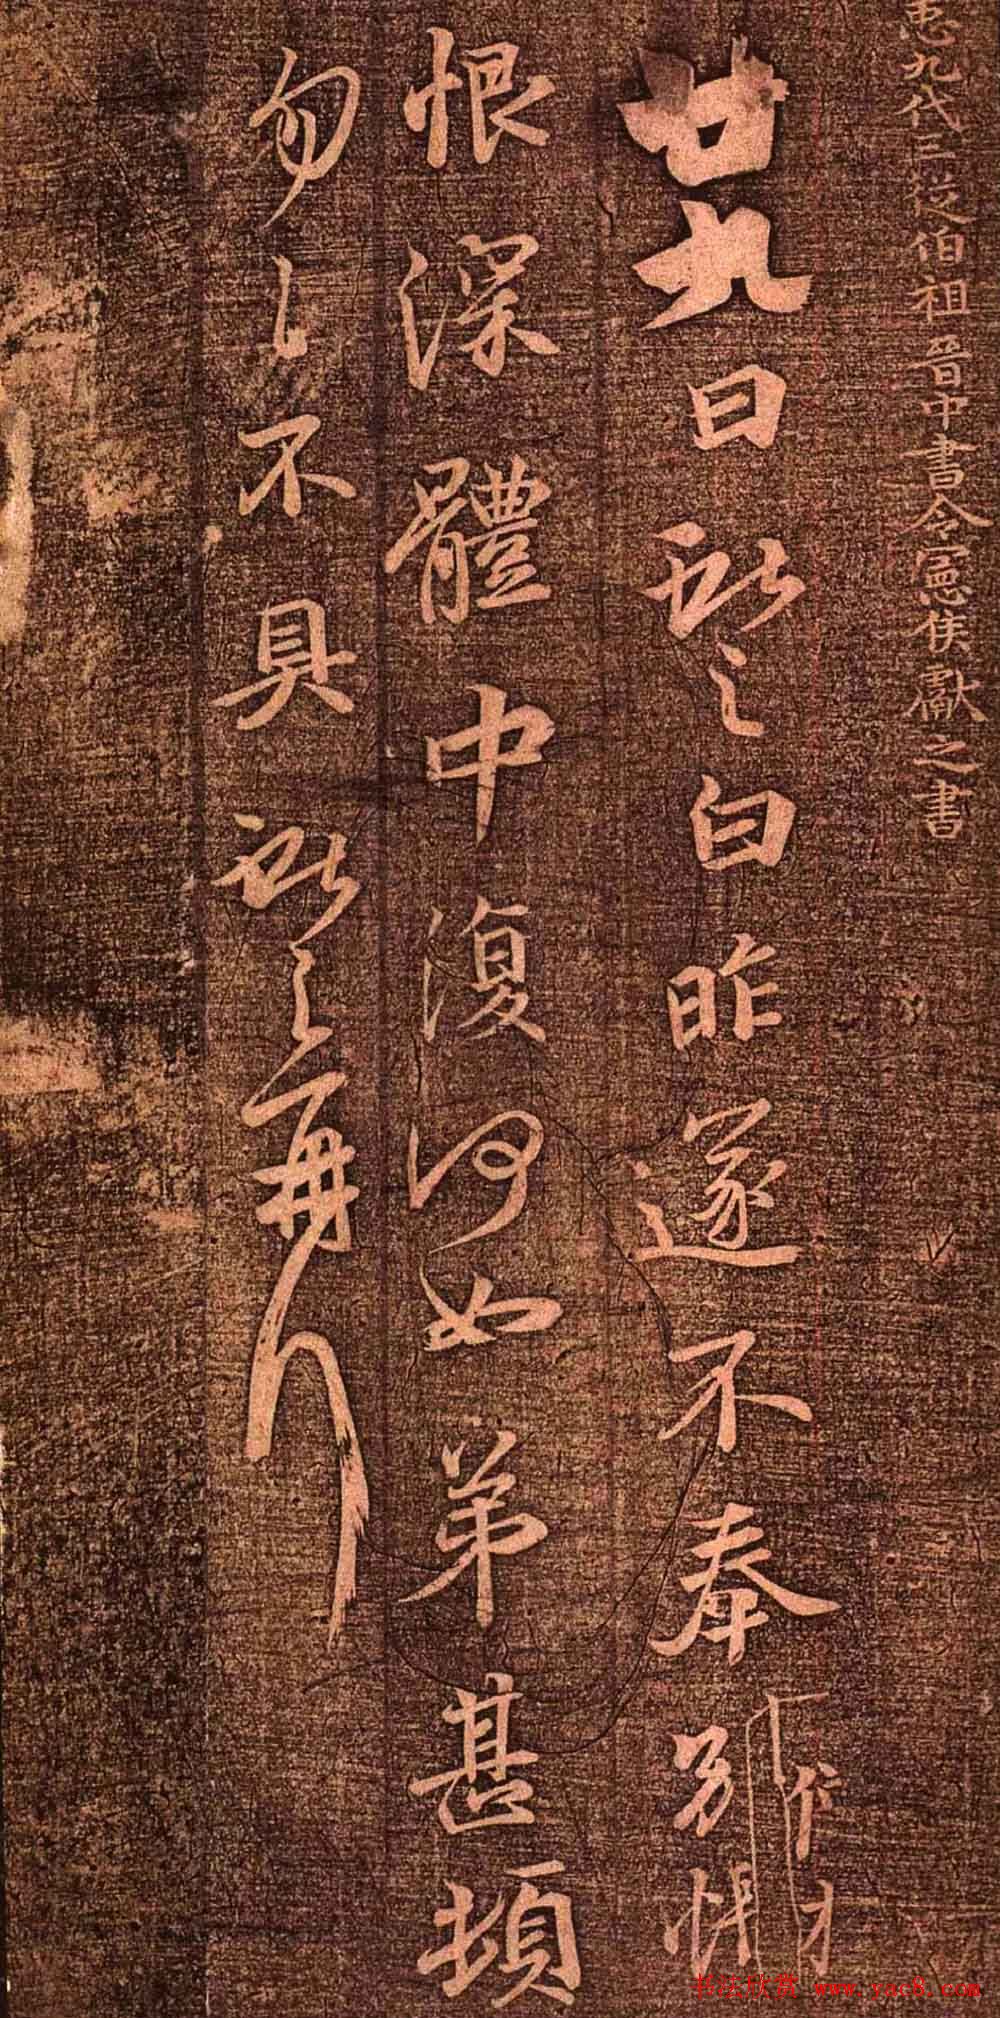 九代三從伯祖晉中書令憲侯獻之書
廿九日獻之白昨遂不奉別悵
恨深體中復何如弟甚頓
勿勿不具獻之再拜
书法欣赏 www.yac8.com